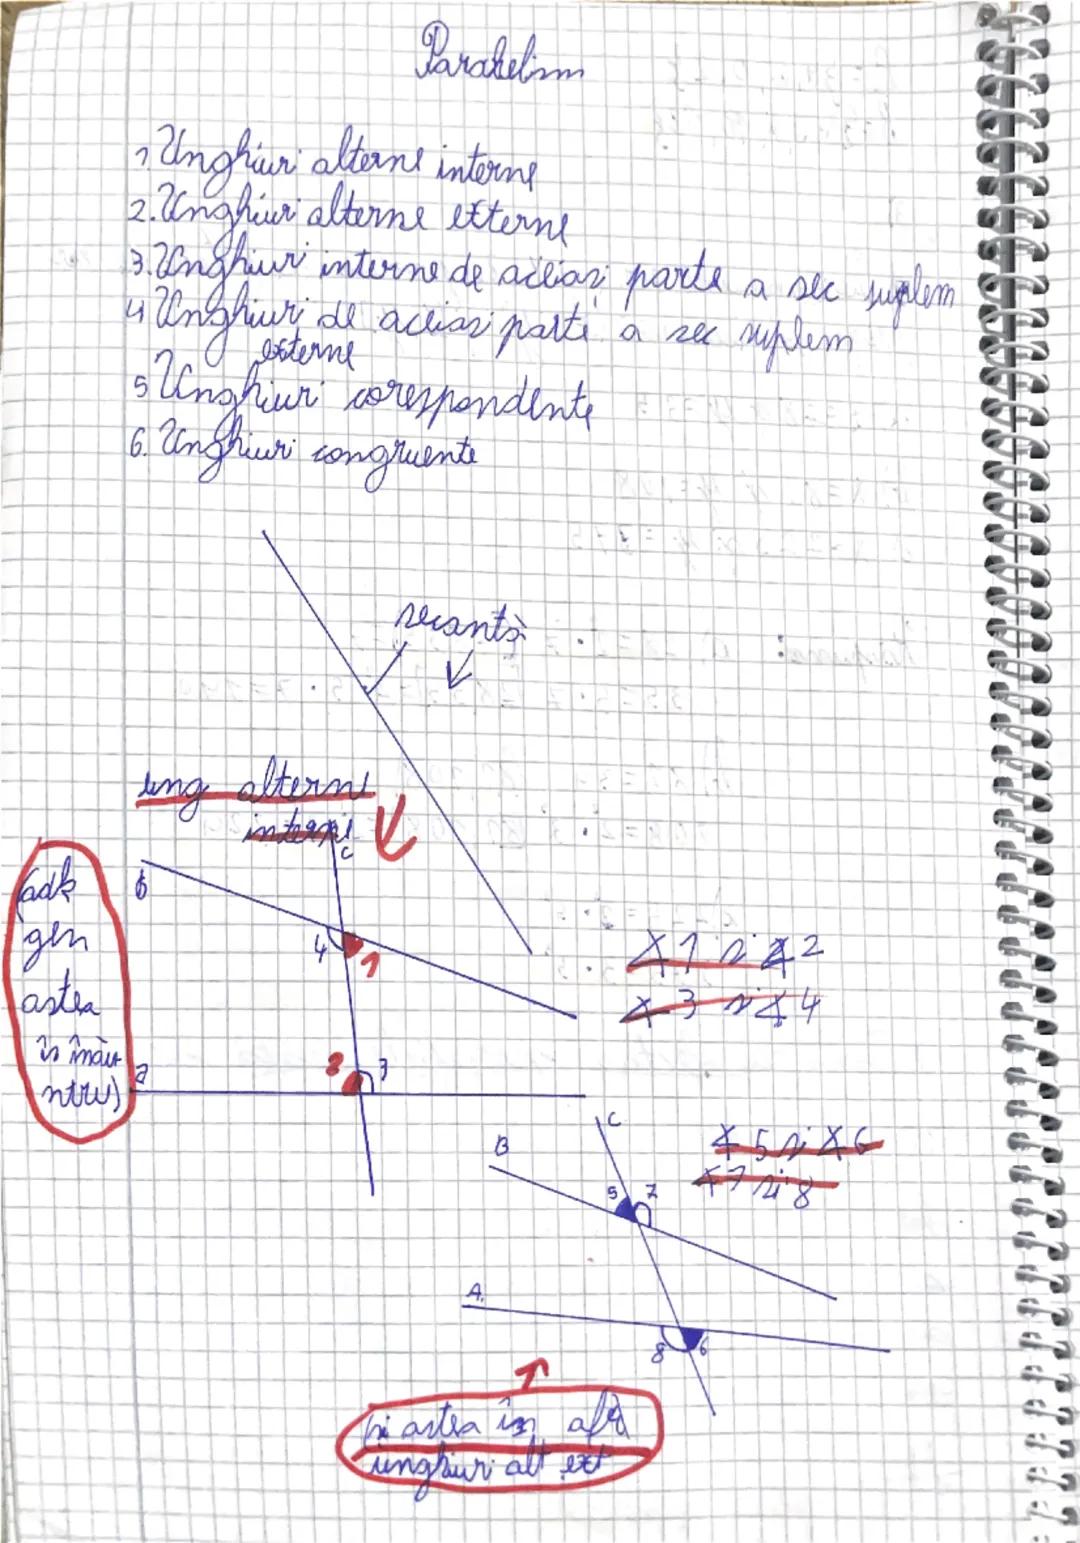 Paralelism
1 Unghiuri alterne interne
2. Unghiuri alterne externe
3. Unghiuri interne de aceiasi parte a sec suplem
4 Unghiuri de aceiasi parte a sec suplem
externe
5 Unghiuri corespondente
6. Unghiuri congruente
secantă
ung alterne
interne
C
B
(adk
gen
astea
îs înău
ntru)
4
1
∢1 si ∢2
∢3 si ∢4
2
3
a
C
B
∢5 si ∢6
∢7 si 8
5
7
A.
8
6
si astea în afă
unghiuri alt ext